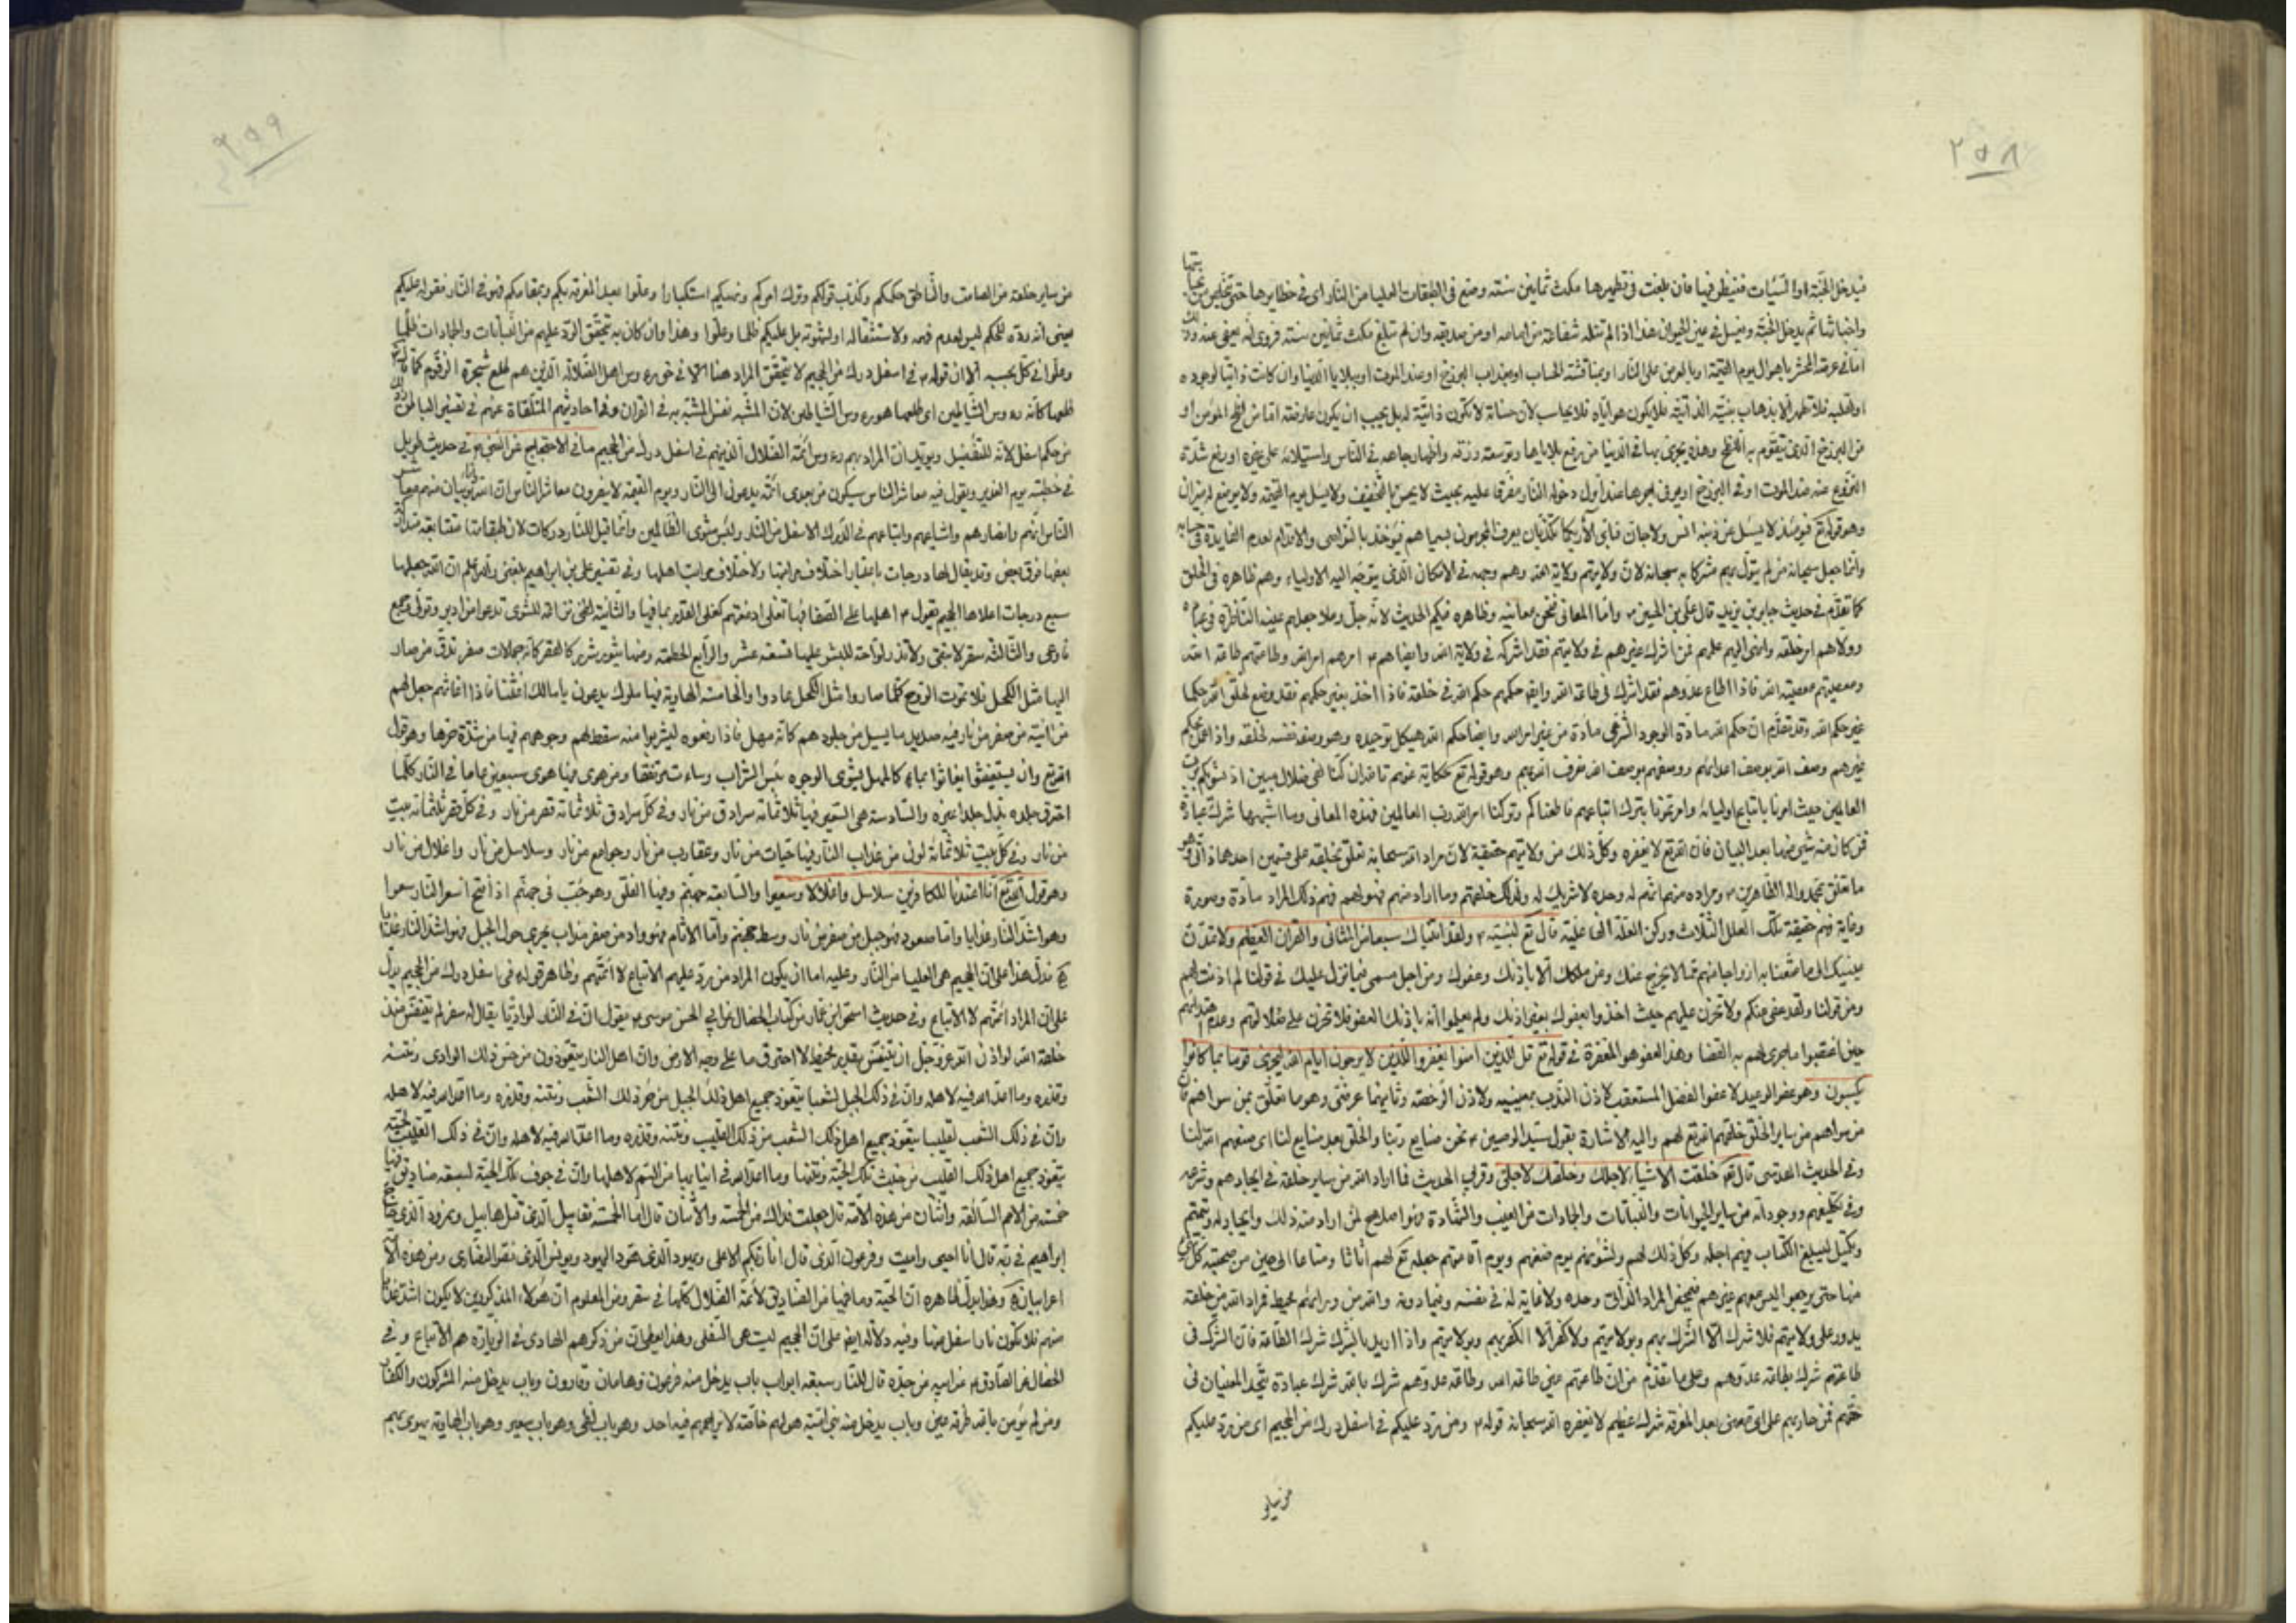 ٢٥٨
فيدخل الجنة او السيئات فتنظر فيها فان بلغت في تطهيرها مكث ثمانين سنة وضع في الطبقات العليا من النار اي في حظايرها حتى تخلص من
ثم يدخل الجنة ويغسل في عين الحيوان هذا اذا لم تنله شفاعة من امامه او من صديقه وان لم تبلغ مكث ثمانين سنة فروي انه يعفى عنه
اما في عرصة المحشر باهوال يوم القيمة او بالعرض على النار او بمناقشة الحساب او بعذاب البرزخ او عند الموت او ببلايا الدنيا وان كانت ذاتيا لوجوده
من البرزخ الذي يتقوم به وهذه يجزى بها في الدنيا من رفع بلاياها وتوسعة رزقه واظهار جاهه في الناس واستيلائه على غيره او رفع شدة
النزع عنه عند الموت او في البرزخ او يوفى اجرها عند اول دخوله النار مفرقا عليه بحيث لا يحس بالتخفيف ولا يسئل يوم القيمة ولا يوضع له ميزان
وهو قوله تع فيومئذ لا يسئل عن ذنبه انس ولا جان فباي الاء ربكما تكذبان يعرف المجرمون بسيماهم فيؤخذ بالنواصي والاقدام لعدم الفايدة في
وانما جعل سبحانه من لم يتول بهم مشركا به سبحانه لان ولايتهم ولاية الله وهم وجهه في الامكان الذي يتوجه اليه الاولياء وهم ظاهره في الخلق
كما تقدم في حديث جابر بن يزيد قال علي بن الحسين ع واما المعاني فنحن معانيه وظاهره فيكم الحديث لانه جل وعلا جعلهم عينه الناظرة في
وولاهم امر خلقه وانهى اليهم علمهم فمن اشرك غيرهم في ولايتهم فقد اشرك في ولاية الله وايضا هم امرهم امر الله وطاعتهم طاعة الله
ومعصيتهم معصية الله فاذا اطاع عدوهم فقد اشرك في طاعة الله وايضا حكمهم حكم الله في خلقه فاذا اخذ بغير حكمهم فقد وضع لخلق الله حكما
غير حكم الله وقد تقدم ان حكم الله مادة الوجود الشرعي مادة من غير امر الله وايضا حكم الله هيكل توحيده وهو وصف نفسه لخلقه واذا
غيرهم وصف الله بوصف اعدائهم ووصفهم بوصف الله وهو قوله تع حكاية عنهم تالله ان كنا لفي ضلال مبين اذ نسويكم برب
العالمين حيث امرنا باتباع اوليائه وامرتمونا بترك اتباعهم فاطعناكم وتركنا امر الله رب العالمين فهذه المعاني وما اشبهها شرك عبادة
فمن كان منه شيء منها بعد البيان فان الله تع لا يغفره وكل ذلك من ولايتهم حقيقة لان مراد الله سبحانه تعلق بخلقه على قسمين احدهما ذاتي وهو
ما تعلق بمحمد واله الطاهرين ع ومراده منهم انهم له وحده لا شريك له ولذلك خلقهم وما اراد منهم فهو لهم فهم ذلك المراد مادة وصورة
وغاية فهم حقيقة تلك العلل الثلاث وركن العلة الفاعلية قال تع لنبيه ص ولقد اتيناك سبعا من المثاني والقران العظيم ولا تمدن
عينيك الى ما متعنا به ازواجا منهم
ومن قولنا ولقد عفى عنكم ولا تحزن عليهم حيث اخذوا بعفوك بغير اذنك ولم يعلموا انه باذنك العفو فلا تحزن على ضلالتهم
حين ما جرى لهم به القضا وهذا العفو هو المغفرة في قوله تع قل للذين امنوا يغفروا للذين لا يرجون ايام الله ليجزي قوما بما كانوا
يكسبون وهو عفو الوعيد لا عفو الفضل وثانيهما عرضي وهو ما تعلق بمن سواهم
من سواهم من ساير الخلق خلقهم الله تع لهم واليه الاشارة بقول سيد الوصيين ع نحن صنايع ربنا والخلق بعد صنايع لنا اي صنعهم الله لنا
وفي الحديث القدسي قال تع خلقت الاشياء لاجلك وخلقتك لاجلي وقرئ الحديث فما اراد الله من ساير خلقه في ايجادهم وشرعه
وفي تكليفهم ووجوداته من ساير الحيوانات والنباتات والجمادات من الغيب والشهادة
ليبلغ الكتاب فيهم اجله وكل ذلك لهم جعله تع لهم اثاثا ومتاعا الى حين
منها حتى يرجعوا اليه
يدور على ولايتهم فلا شرك الا الشرك بهم وبولايتهم ولا كفر الا الكفر بهم وبولايتهم واذا اريد بالشرك شرك الطاعة فان الشرك في
طاعتهم شرك بطاعة عدوهم وعلى ما تقدم من ان طاعتهم عين طاعة الله وطاعة عدوهم شرك بالله شرك عبادة يتحد المعنيان في
حقهم فمن حاربهم على اي معنى بعد المعرفة شرك عظيم لا يغفره الله سبحانه قوله ع ومن رد عليكم في اسفل درك من الجحيم اي من رد عليكم
من ساير
٢٥٩
من ساير خلقه من الصامت والناطق حكمكم وكذب قولكم وترك امركم ونهيكم استكبارا وعلوا بعد المعرفة بكم وبمقامكم فهو في النار فقوله عليكم
يعني انه رده للحكم ليس لعدم فهمه ولا استثقاله او لشهوته بل عليكم ظلما وعلوا وهذا وان كان به تحقق الرد عليهم من النباتات والجمادات ظلما
وعلوا في كل بحسبه الا ان قوله ع في اسفل درك من الجحيم لا يتحقق المراد هنا الا في رؤس اهل الضلالة الذين هم طلع شجرة الزقوم كما
طلعها كانه رءوس الشياطين اي طلعها هو رءوس الشياطين لان المشبه نفس المشبه به في القران وفي احاديثهم المتلقاة عنهم في تفسير الباطن
من حكم اسفل لانه للتفضيل ويؤيد ان المراد بهم رءوس ائمة الضلال الذين هم في اسفل درك من الجحيم ما في الاحتجاج عن النبي ص في حديث طويل
في خطبته يوم الغدير ويقول فيه معاشر الناس سيكون من بعدي ائمة يدعون الى النار ويوم القيمة لا ينصرون معاشر الناس ان الله وانا بريئان منهم معاشر
الناس انهم وانصارهم واشياعهم واتباعهم في الدرك الاسفل من النار ولبئس مثوى الظالمين وانما قيل للنار دركات لان طبقاتها متتابعة
بعضها فوق بعض وقد يقال لها درجات باعتبار اختلاف مراتبها ولاختلاف مراتب اهلها وفي تفسير علي بن ابراهيم والله اعلم ان الله جعلها
سبع درجات اعلاها الجحيم يقوم اهلها على الصفا فيها تغلي ادمغتهم كغلي القدور بما فيها والثانية لظى نزاعة للشوى تدعوا من ادبر وتولى وجمع
فاوعى والثالثة سقر لا تبقي ولا تذر لواحة للبشر عليها تسعة عشر والرابع الحطمة ومنها يثور شرر كالقصر كانه جمالات صفر تدق من صار
اليها مثل الكحل فلا تموت الروح كلما صاروا مثل الكحل عادوا والخامسة الهاوية فيها ملوك يدعون يا مالك اغثنا فاذا اغاثهم جعل لهم
من انية من صفر من نار فيه صديد ما يسيل من جلودهم كانه مهل فاذا رفعوه ليشربوا منه سقط لحم وجوههم فيها من شدة حرها وهو قول
الله تع وان يستغيثوا يغاثوا بماء كالمهل يشوي الوجوه بئس الشراب وساءت مرتفقا ومن هوى فيها هوى سبعين عاما في النار كلما
احترق جلده بدل جلدا غيره والسادسة هي السعير فيها ثلاثمائة سرادق من نار وفي كل سرادق ثلاثمائة قصر من نار وفي كل قصر ثلثمائة بيت
من نار وفي كل بيت ثلاثمائة لون من عذاب النار فيها حيات من نار وعقارب من نار وجوامع من نار وسلاسل من نار واغلال من نار
وهو قول الله تع انا اعتدنا للكافرين سلاسل واغلالا وسعيرا والسابعة جهنم وفيها الفلق وهو جب في جهنم اذا فتح اسعر النار سعرا
وهو اشد النار عذابا واما صعود فجبل من صفر من نار وسط جهنم واما الاثام فهو واد من صفر مذاب يجري حول الجبل فهو اشد النار عذابا
فدل هذا على ان الجحيم هي العليا من النار وعليه اما ان يكون المراد من رد عليهم الاتباع لا ائمتهم وظاهر قوله في اسفل درك من الجحيم يدل
على ان المراد ائمتهم لا الاتباع وفي حديث اسحق ابن عمار من كتاب الخصال عن ابي الحسن موسى ع يقول ان في النار لواديا يقال له سقر لم يتنفس منذ
خلقه الله لو اذن الله عز وجل له ان يتنفس بقدر مخيط لاحترق ما على وجه الارض وان اهل النار يتعوذون من حر ذلك الوادي ونتنه
وقذره وما اعد الله فيه لاهله وان في ذلك الجبل لشعبا يتعوذ جميع اهل ذلك الجبل من حر ذلك الشعب ونتنه وقذره وما اعد الله فيه لاهله
وان في ذلك الشعب لقليبا يتعوذ جميع اهل ذلك الشعب من ذلك القليب ونتنه وقذره وما اعد الله فيه لاهله وان في ذلك القليب لحية
يتعوذ جميع اهل ذلك القليب من خبث تلك الحية ونتنها وما اعد الله في انيابها من السم لاهلها وان في جوف تلك الحية لسبعة صناديق فيها
خمسة من الامم السالفة واثنان من هذه الامة قال جعلت فداك من الخمسة والاثنان قال اما الخمسة فقابيل الذي قتل هابيل ونمرود الذي حاج
ابراهيم في ربه قال انا احيي واميت وفرعون الذي قال انا ربكم الاعلى ويهود الذي هود اليهود ويونس الذي نصر النصارى ومن هذه الامة
اعرابيان وهذا يدل بظاهره ان الحية وما فيها من الصناديق لائمة الضلال كلها في سقر ومن المعلوم ان هؤلاء المذكورين لا يكون اشد عذابا
منهم فلا يكون نار اسفل منها وفيه دلالة ايضا على ان الجحيم ليست هي السفلى وهذا يعطي ان من ذكرهم الهادي في الزيارة هم الاتباع وفي
الخصال عن الصادق ع عن ابيه عن جده قال للنار سبعة ابواب باب يدخل منه فرعون وهامان وقارون وباب يدخل منه المشركون والكفار
ومن لم يؤمن بالله طرفة عين وباب يدخل منه بني امية هو لهم خاصة لا يزاحمهم فيه احد وهو باب لظى وهو باب سعير وهو باب الهاوية يهوي بهم